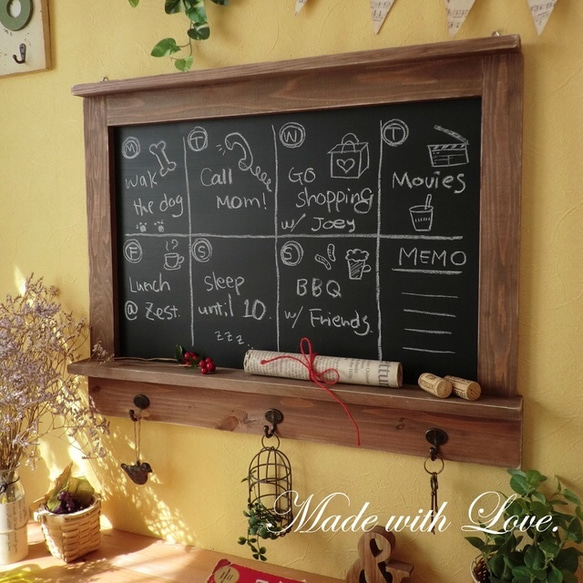 M
wak
the dog
T
Call
MOM!
W
GO
shopping
w/ Joey
T
Movies
F
Lunch
@ Zest.
S
sleep
until 10.
z z z..
S
BBQ
w/ Friends.
MEMO
Made with Love.